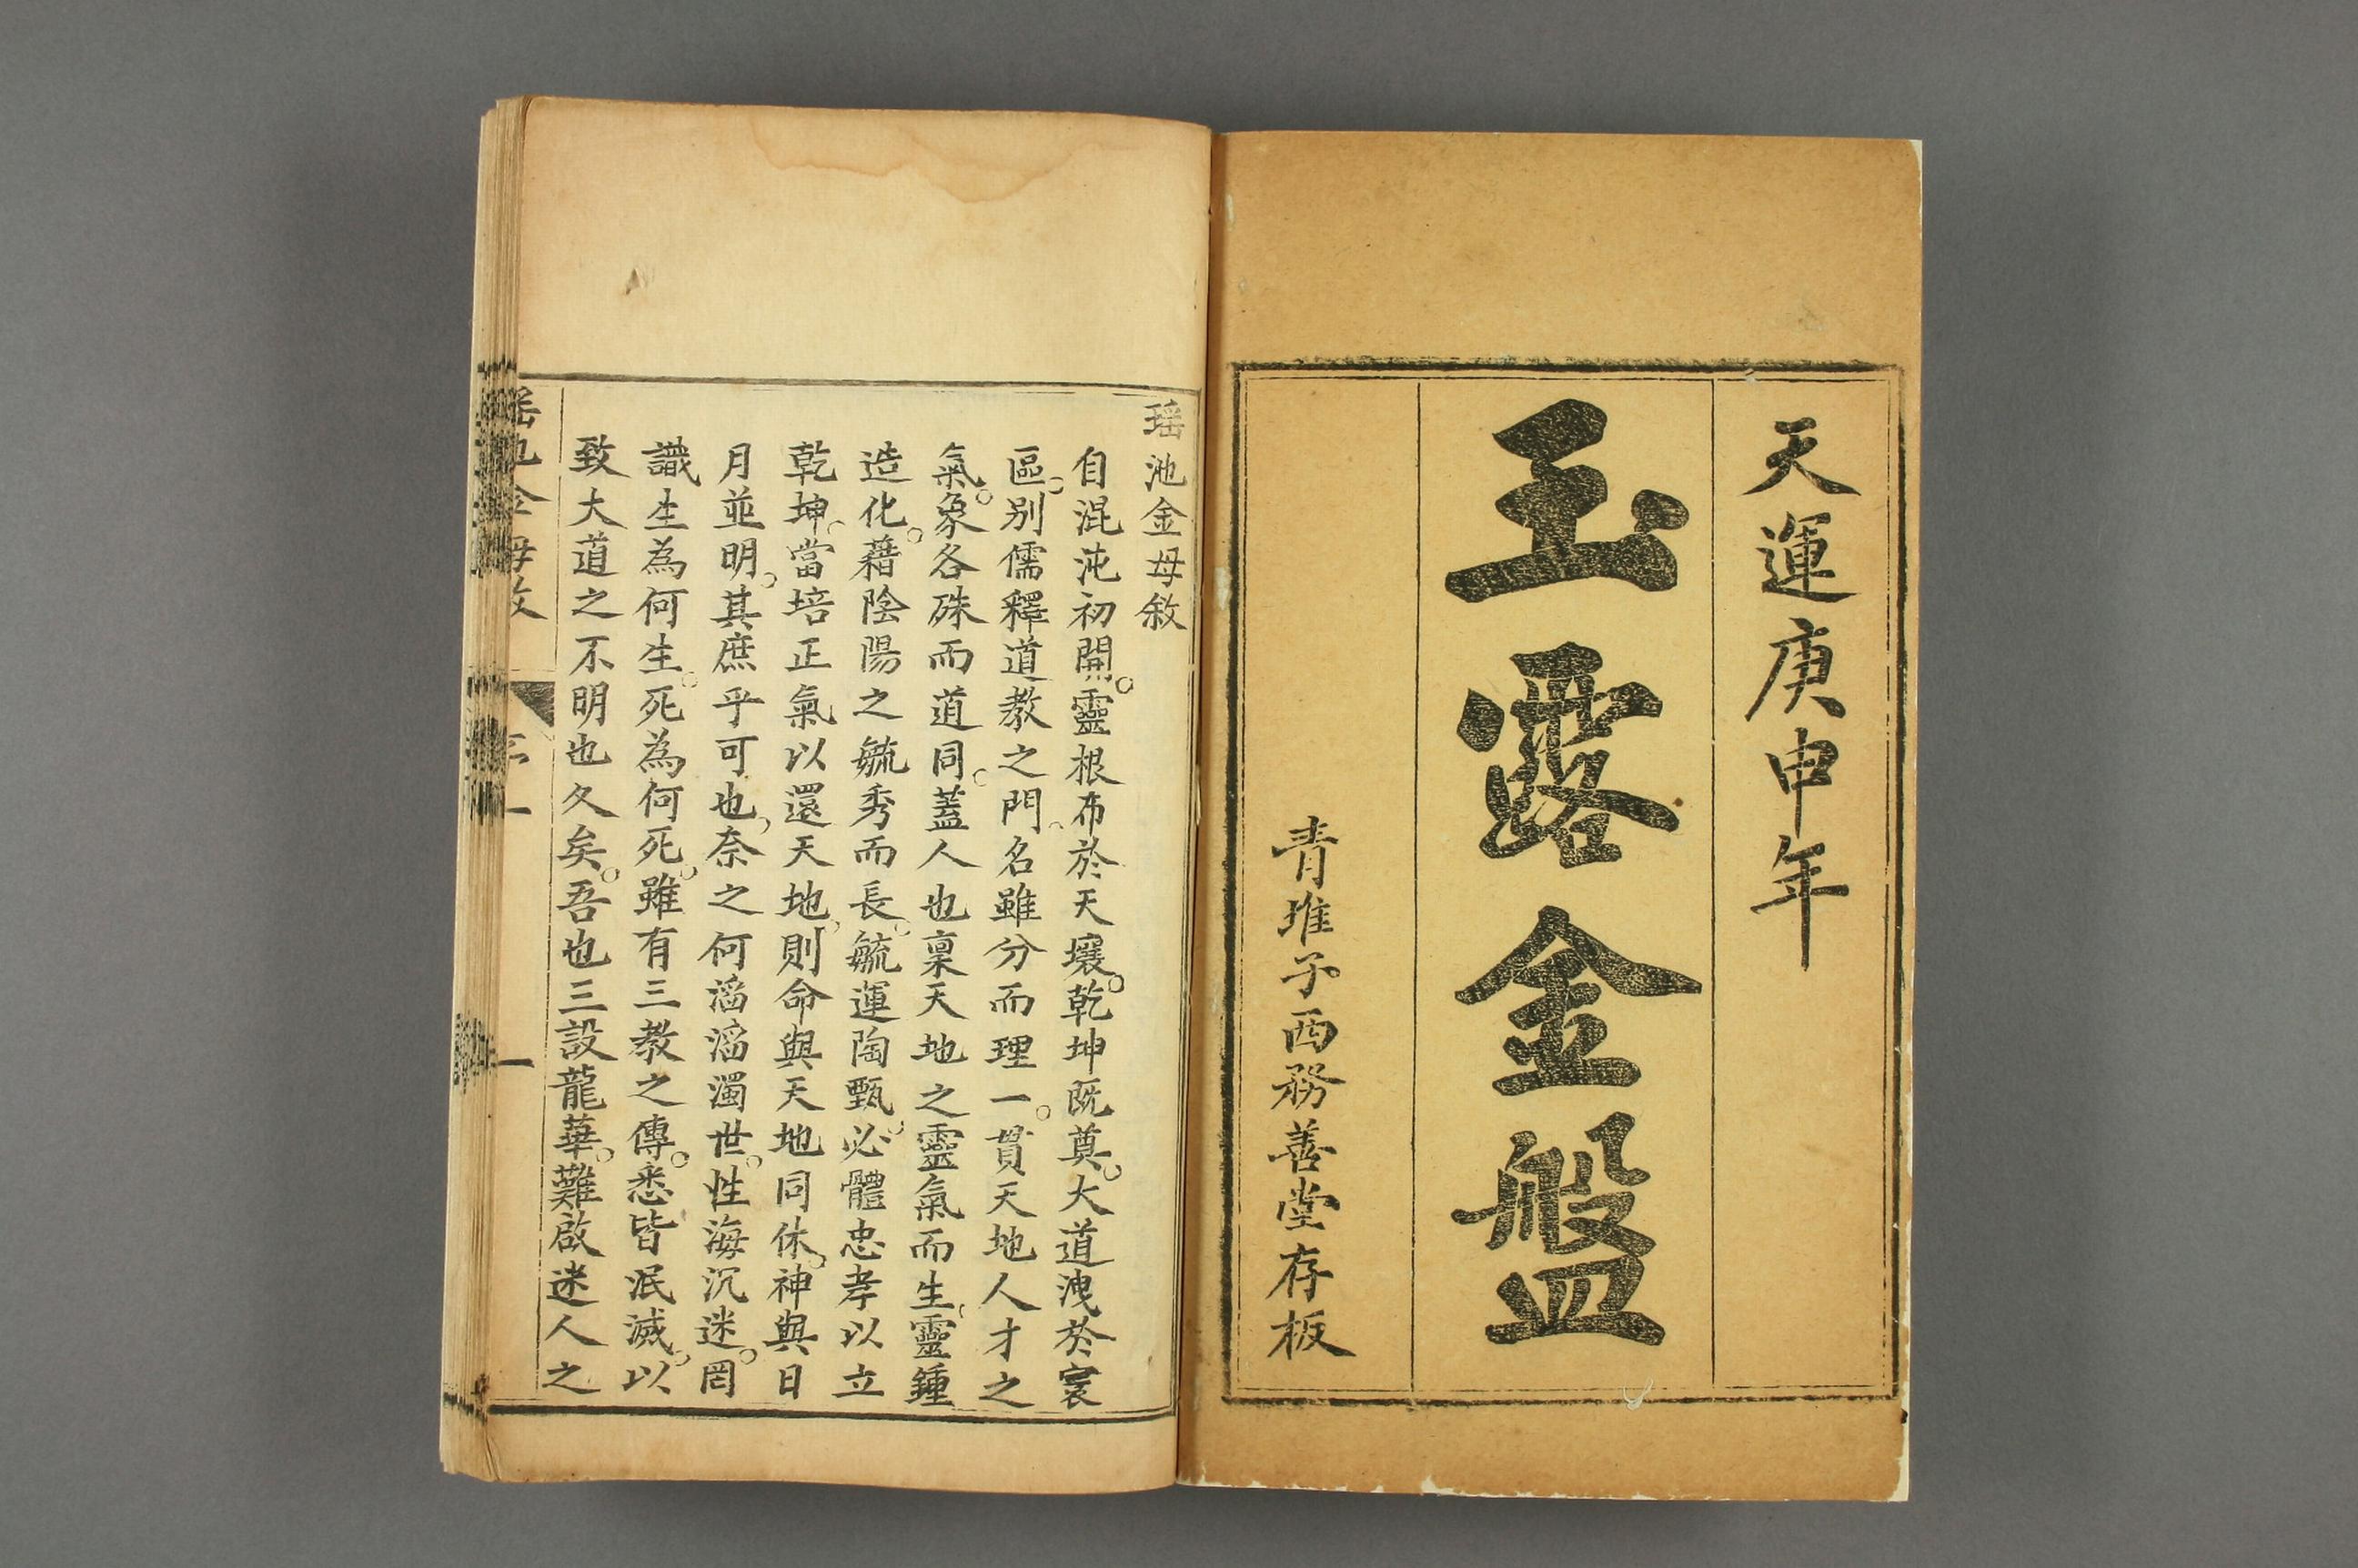 天運庚申年
玉露金盤
青堆子西務善堂存板
瑶池金母敘
自混沌初開。靈根布於天壤。乾坤既奠。大道洩於寰
區。别儒釋道教之門。名雖分而理一。貫天地人才之
氣。象各殊而道同。蓋人也稟天地之靈氣而生。靈鍾
造化。藉陰陽之毓秀而長。毓運陶甄。必體忠孝以立
乾坤。當培正氣以還天地。則命與天地同休。神與日
月並明。其庶乎可也。奈之何滔滔濁世。性海沉迷。罔
識生為何生。死為何死。雖有三教之傳。悉皆泯滅。以
致大道之不明也久矣。吾也三設龍華。難啟迷人之
瑶池金母敘
序一
一